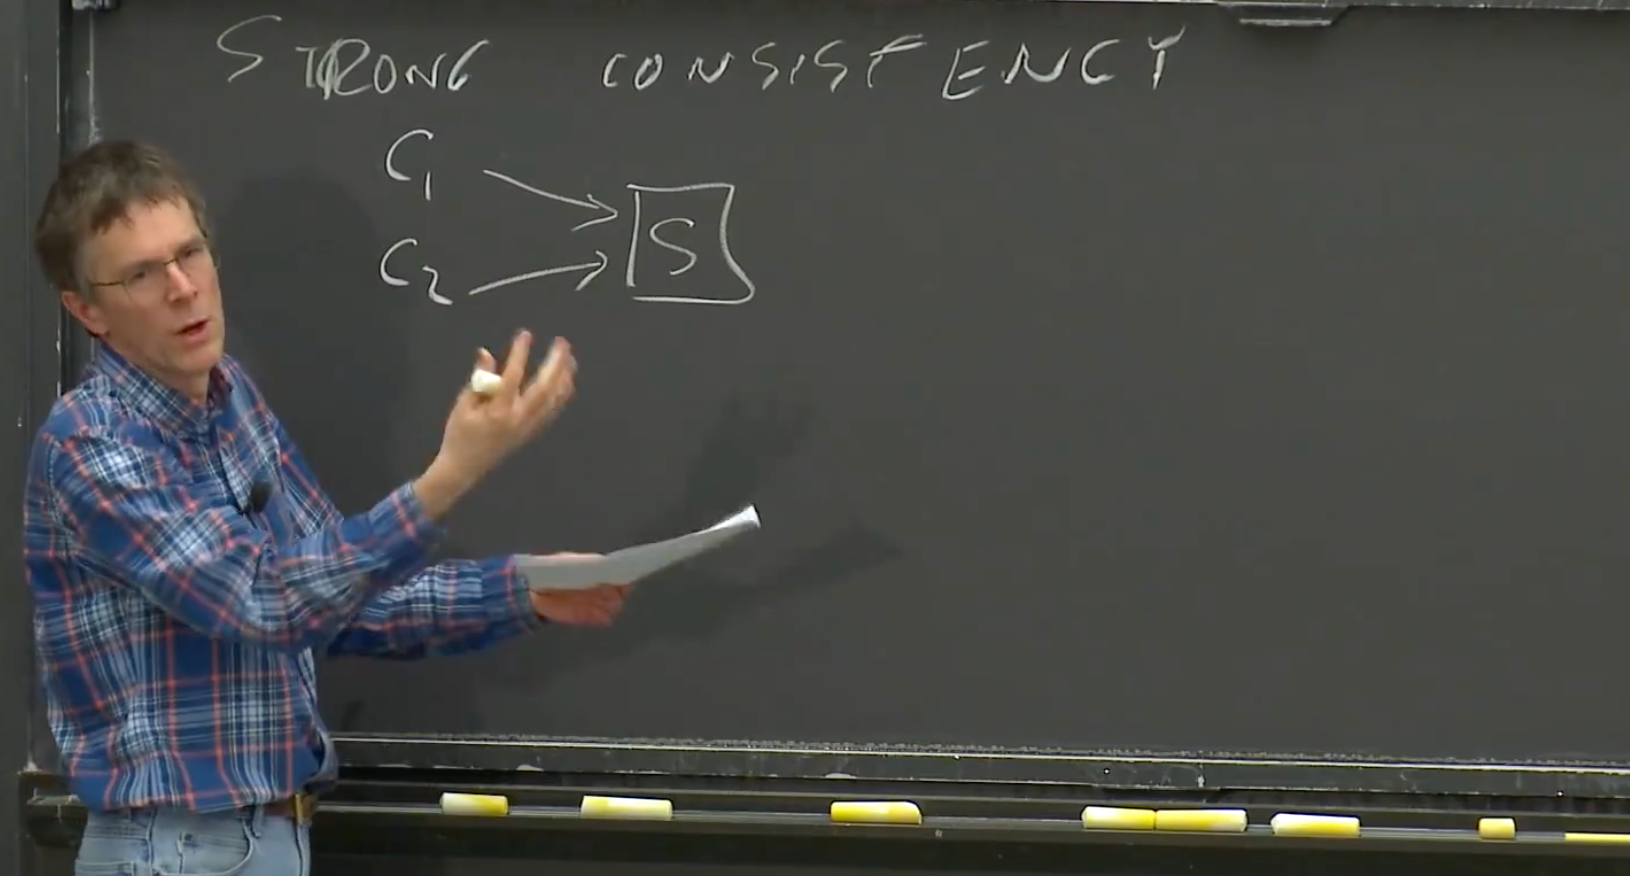 STRONG CONSISTENCY
C1
C2
S